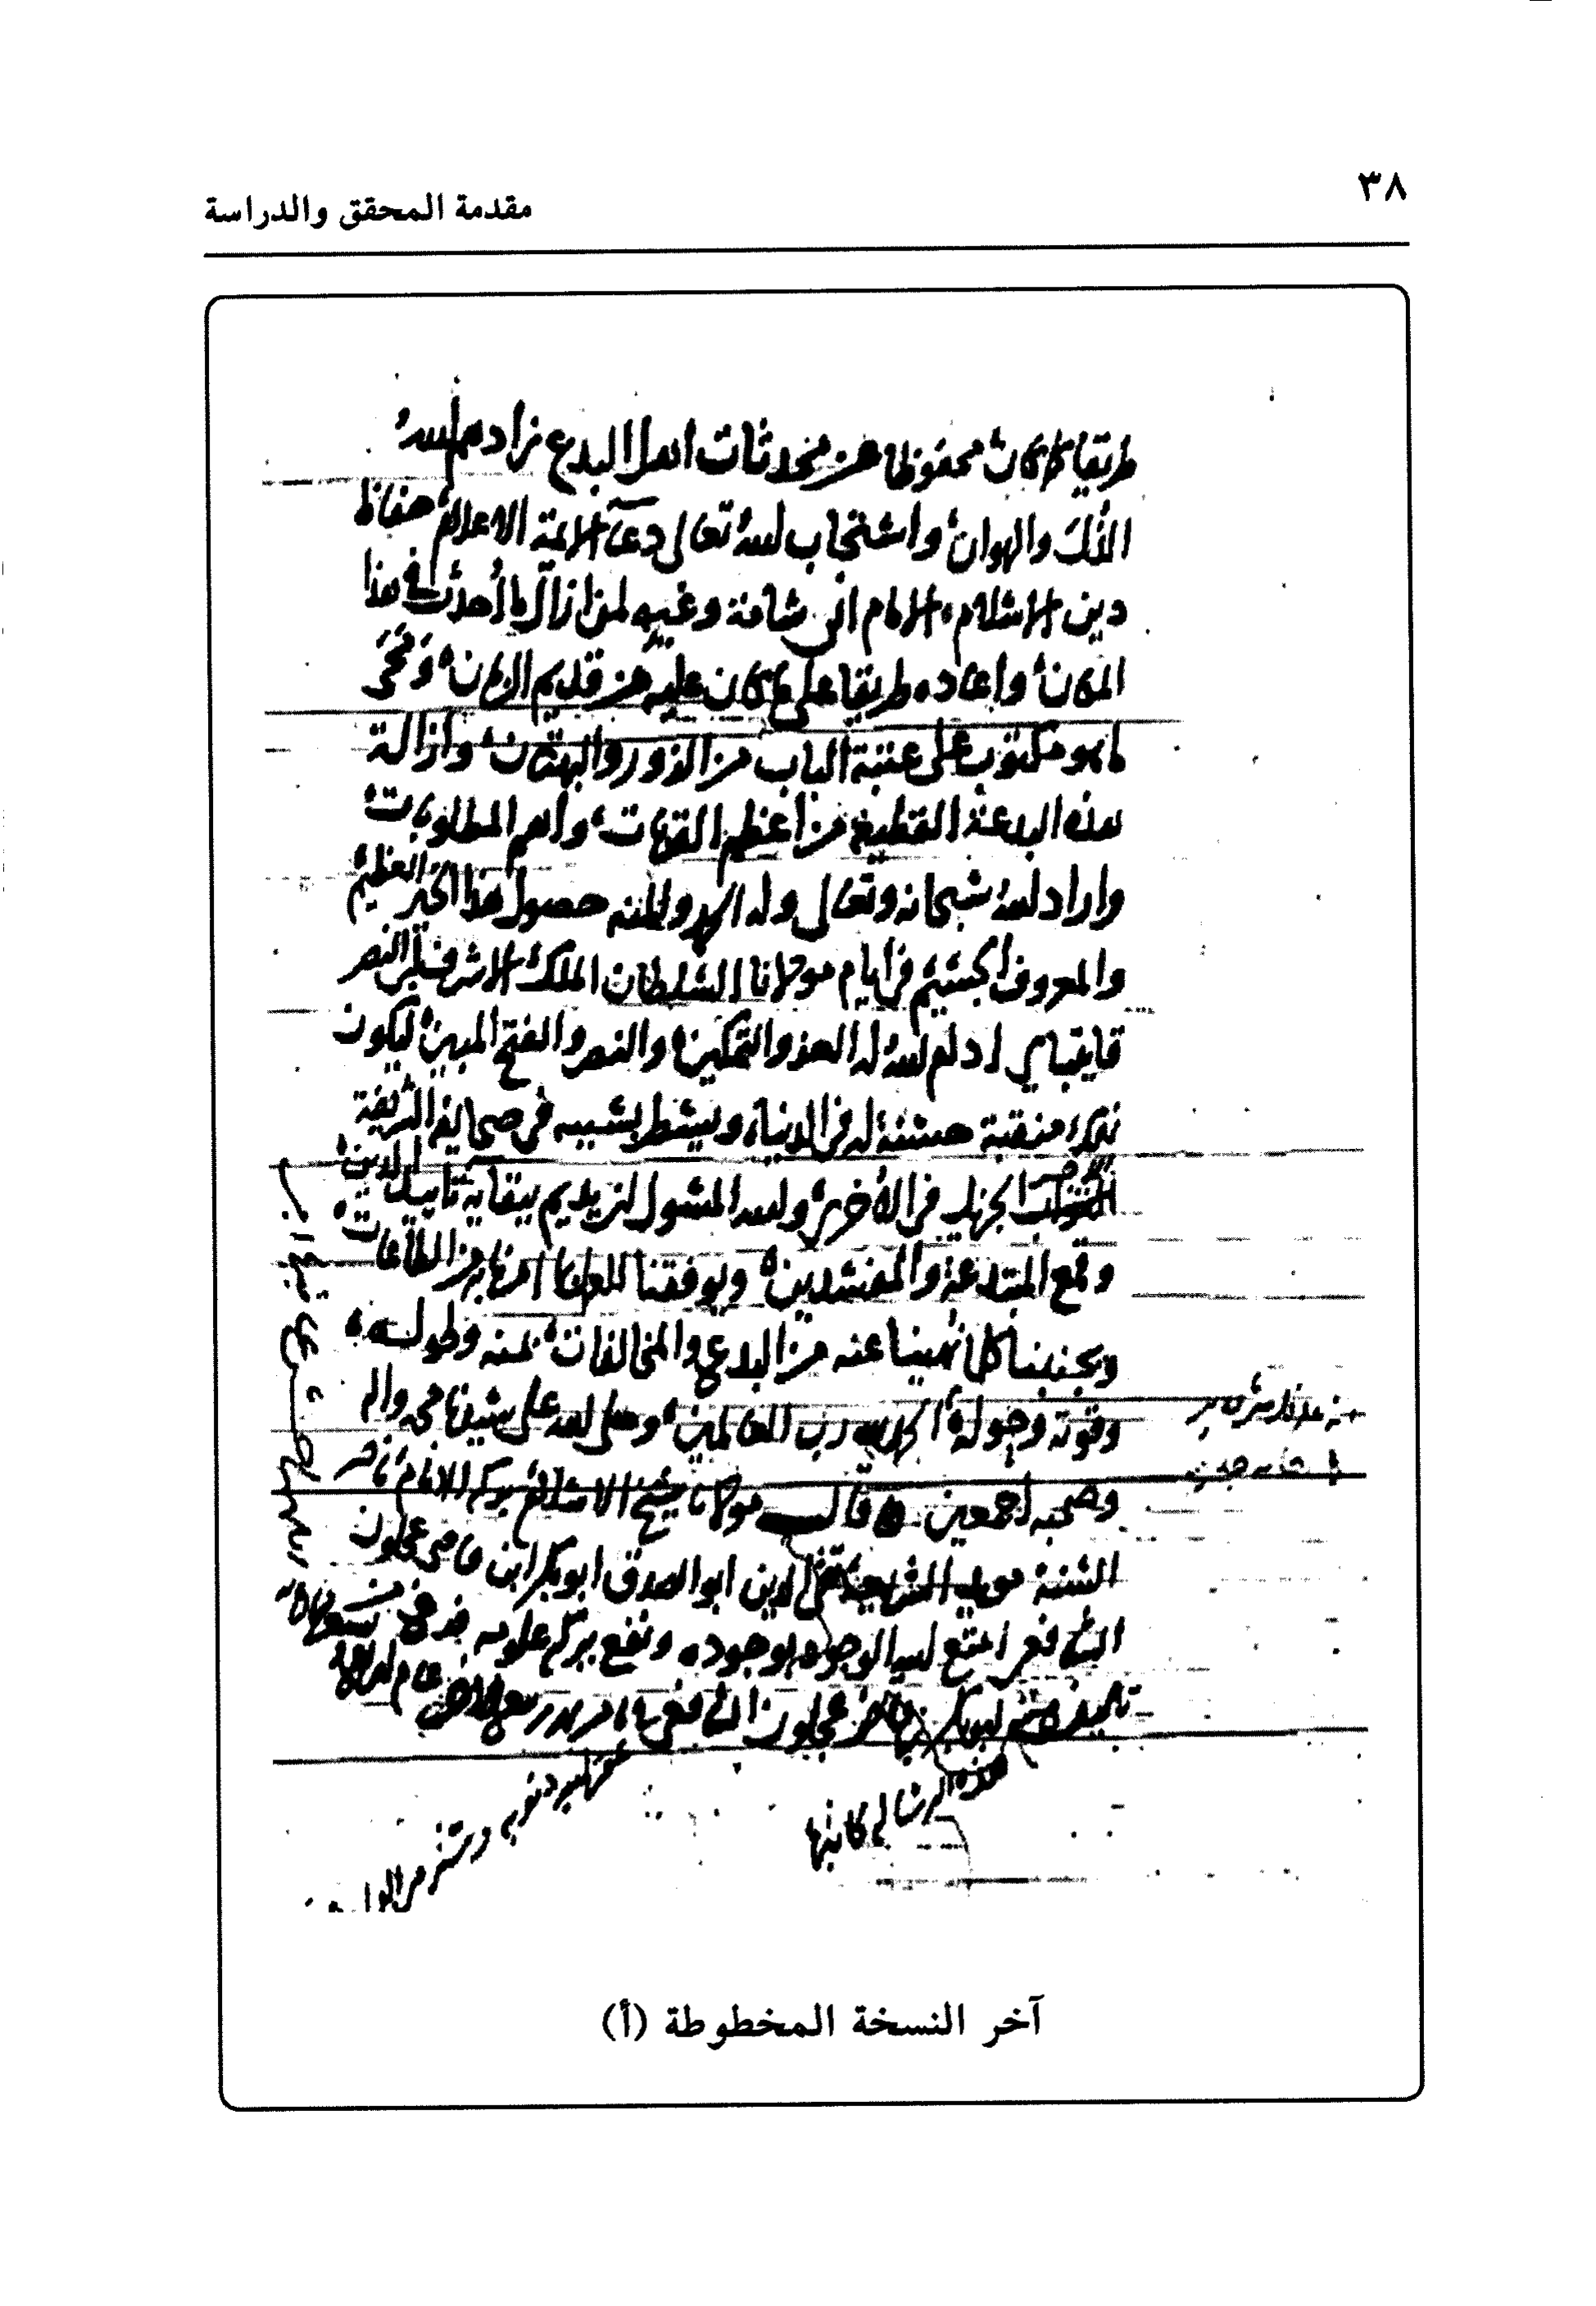 ٣٨
مقدمة المحقق والدراسة
طريقا كما كان محفوظا من محدثات اهل البدع زادهم الله
الذل والهوان واستجاب الله تعالى دعآ الايمة الاعلام حفاظ
دين الاسلام الامام ابي شامة وغيره لمن ازال ما احدث في هذا
المكان واعاده طريقا على ما كان عليه من قديم الزمان ومحى
ما هو مكتوب على عتبة الباب من الزور والبهتان وازالة
هذه البدعة الفظيعة من اعظم القربات واهم المطلوبات
واراد الله سبحانه وتعالى وله الحمد والمنه حصول هذا الخير العظيم
والمعروف الجسيم في ايام مولانا السلطان الملك الاشرف ابي النصر
قايتباي ادام الله له العز والتمكين والنصر والفتح المبين ليكون
ذلك منقبة حسنة له في الدنيا ويسطر بسببه في صحايفه الشريفة
الثواب الجزيل في الاخرى والله المسئول ان يديم ببقايه تاييد الدين
وقمع المبتدعة والمفسدين ويوفقنا للعمل بما امرنا به من الطاعات
ويجنبنا كل ما نهينا عنه من البدع والمخالفات بمنه وطوله
وقوته وحوله الحمد لله رب العالمين وصلى الله على سيدنا محمد واله
وصحبه اجمعين قال مولانا شيخ الاسلام بركة الانام ناصر
السنة مويد الشريعة تقي الدين ابو الصدق ابو بكر ابن قاضي عجلون
الشافعي امتع الله الوجود بوجوده ونفع ببركة علومه
ابو بكر بن قاضي عجلون الشافعي
هذه الرسالة كاتبها
آخر النسخة المخطوطة (أ)